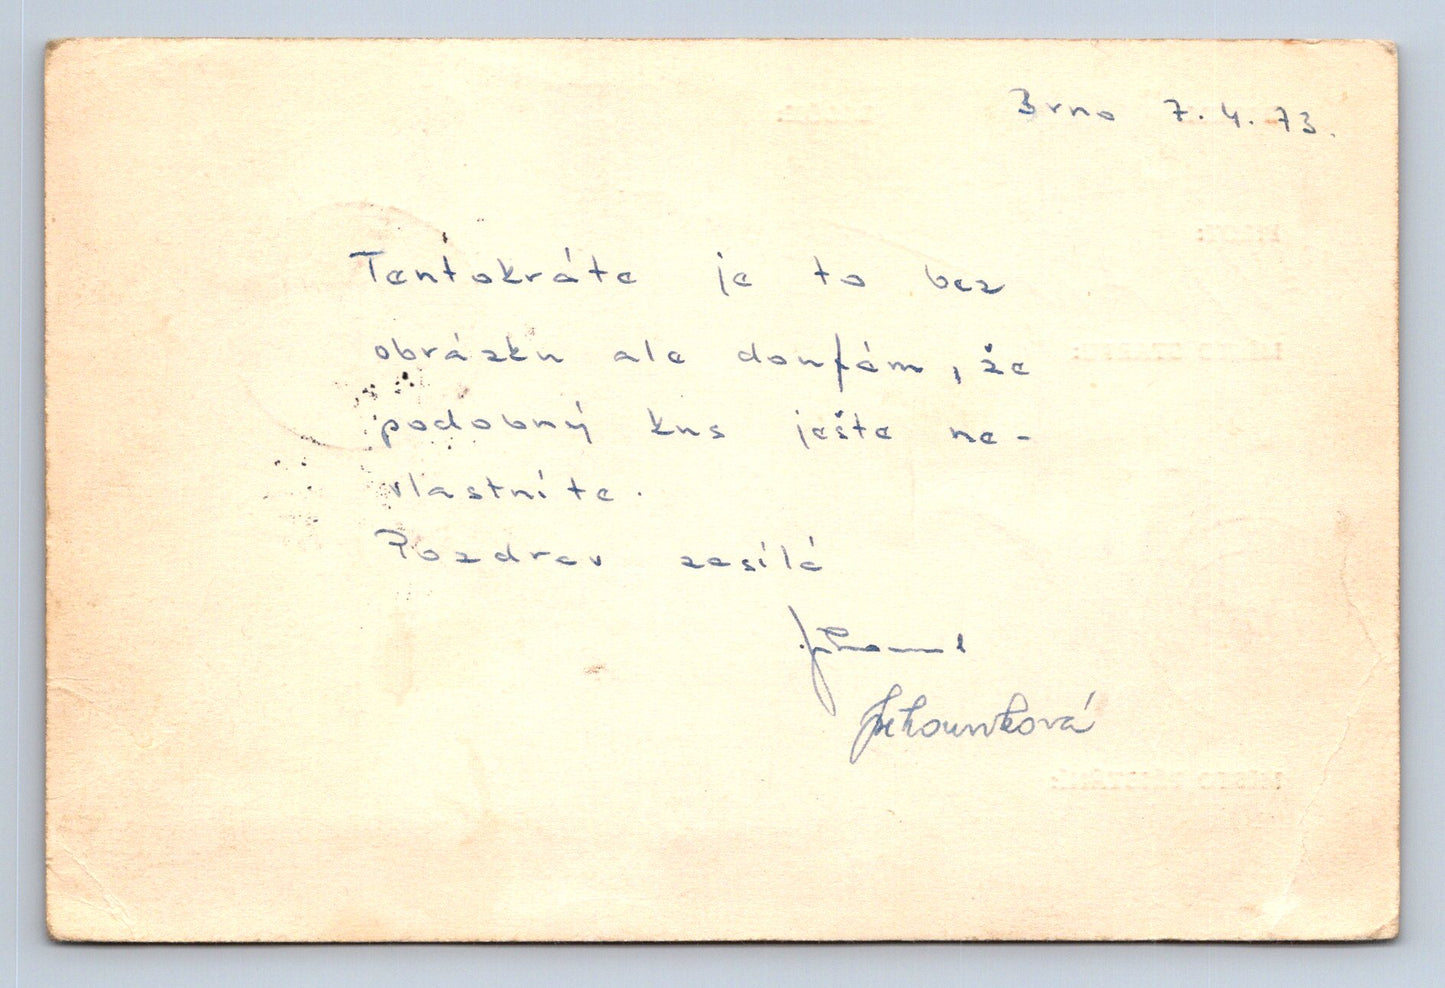 Brno 7.4.73.
Tentokráte je to bez
obrázku ale doufám, že
podobný kus ješte ne-
vlastníte.
Pozdrav zasílá